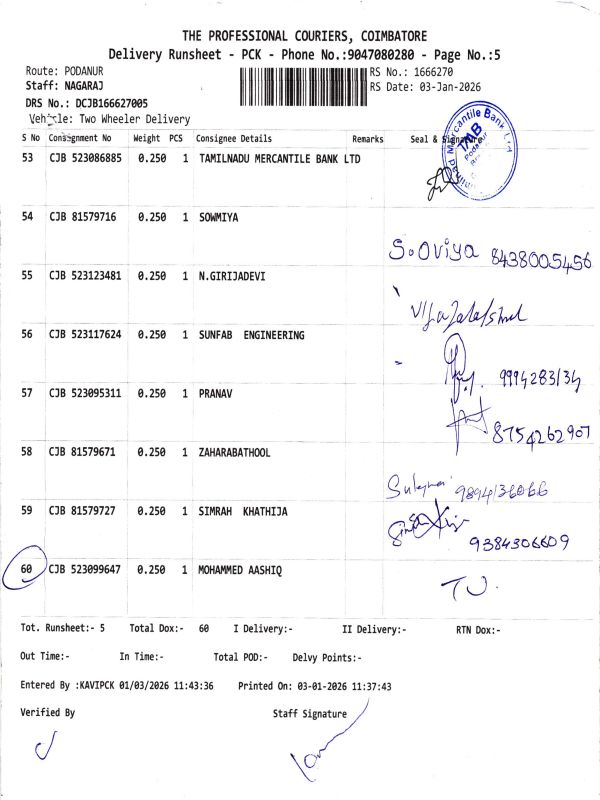 THE PROFESSIONAL COURIERS, COIMBATORE
Delivery Runsheet - PCK - Phone No.:9047080280 - Page No.:5
Route: PODANUR
RS No.: 1666270
Staff: NAGARAJ
RS Date: 03-Jan-2026
DRS No.: DCJB166627005
Vehicle: Two Wheeler Delivery
S No Consignment No Weight PCS Consignee Details Remarks Seal & Signature No
53 CJB 523086885 0.250 1 TAMILNADU MERCANTILE BANK LTD
Mercantile Bank Ltd
TMB
54 CJB 81579716 0.250 1 SOWMIYA
S.Oviya 8438005456
55 CJB 523123481 0.250 1 N.GIRIJADEVI
56 CJB 523117624 0.250 1 SUNFAB ENGINEERING
9994283134
57 CJB 523095311 0.250 1 PRANAV
8754262907
58 CJB 81579671 0.250 1 ZAHARABATHOOL
9894136066
59 CJB 81579727 0.250 1 SIMRAH KHATHIJA
9384306609
60 CJB 523099647 0.250 1 MOHAMMED AASHIQ
Tot. Runsheet:- 5 Total Dox:- 60 I Delivery:- II Delivery:- RTN Dox:-
Out Time:- In Time:- Total POD:- Delvy Points:-
Entered By :KAVIPCK 01/03/2026 11:43:36 Printed On: 03-01-2026 11:37:43
Verified By Staff Signature